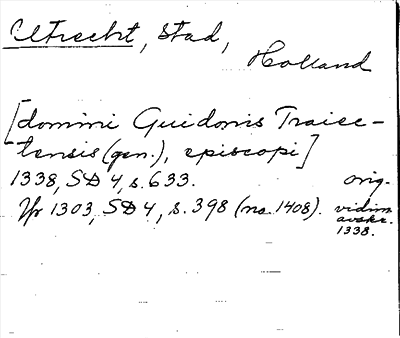 Utrecht, stad,
Holland
[domini Guidonis Traiec-
tensis (gen.), episcopi]
1338, SD 4, s. 633. orig.
Jfr 1303, SD 4, s. 398 (no. 1408). vidim.
avskr.
1338.